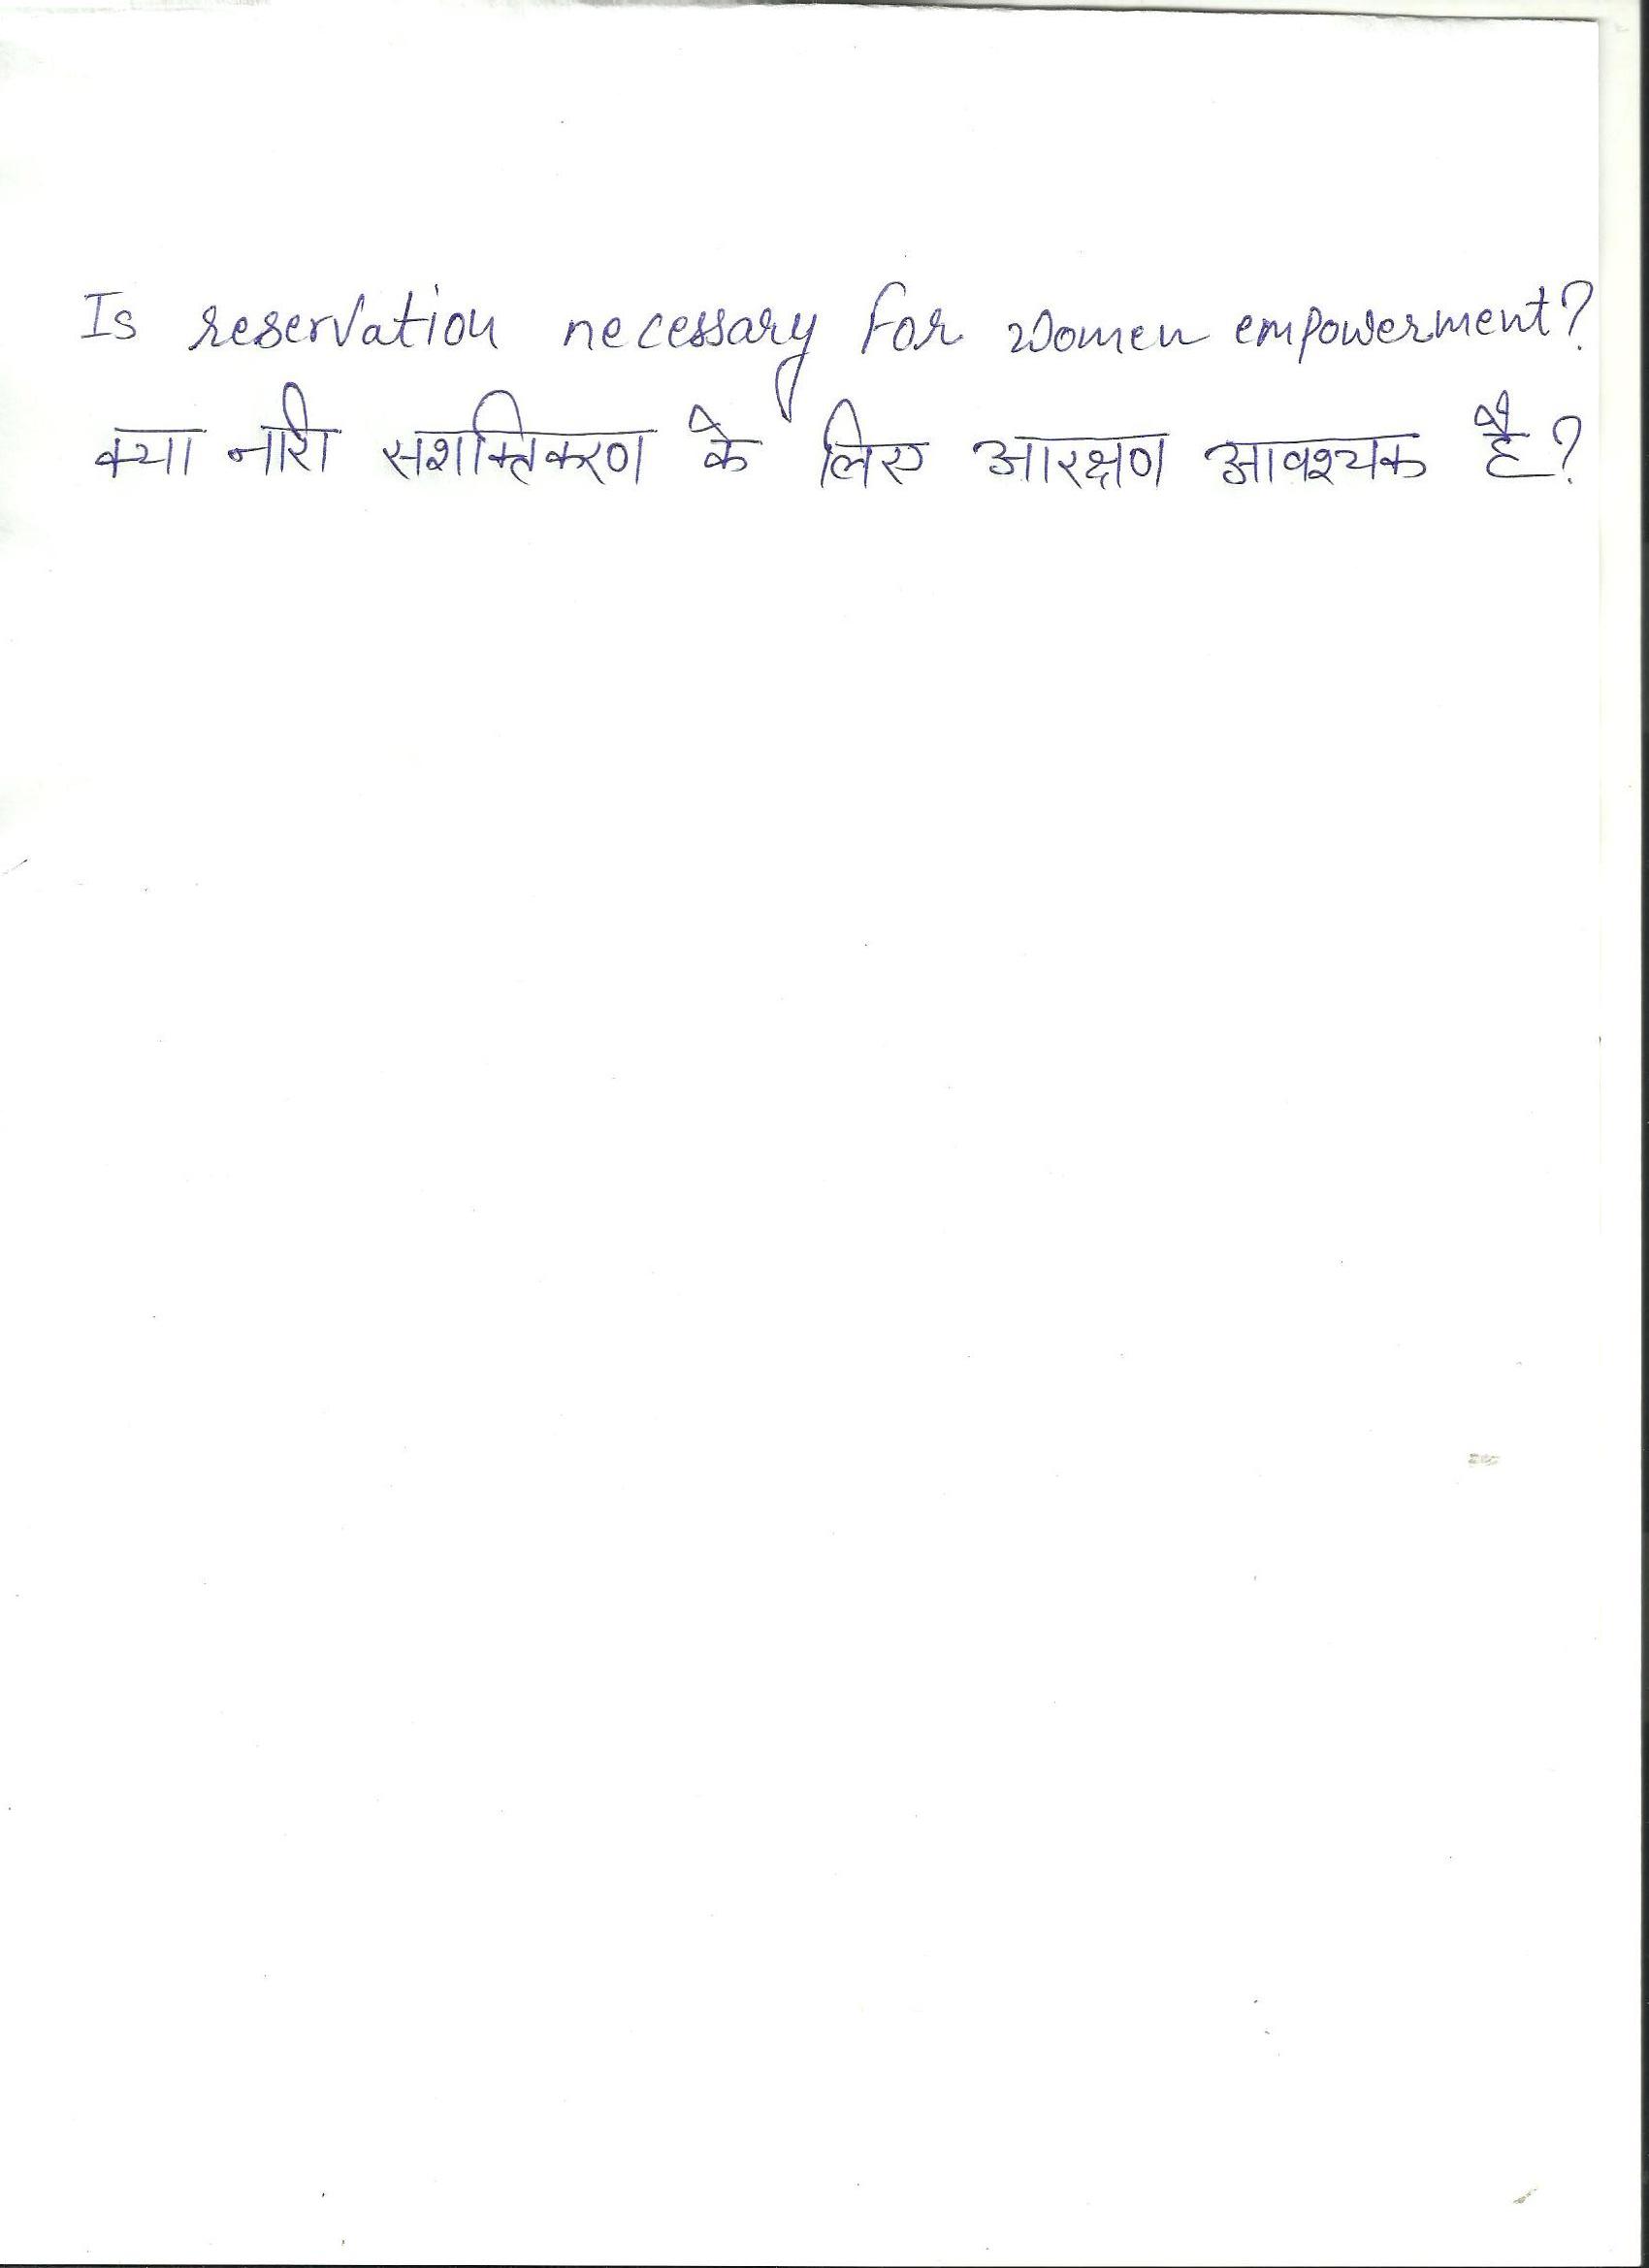 Is reservation necessary for women empowerment?
क्या नारी सशक्तिकरण के लिए आरक्षण आवश्यक है?